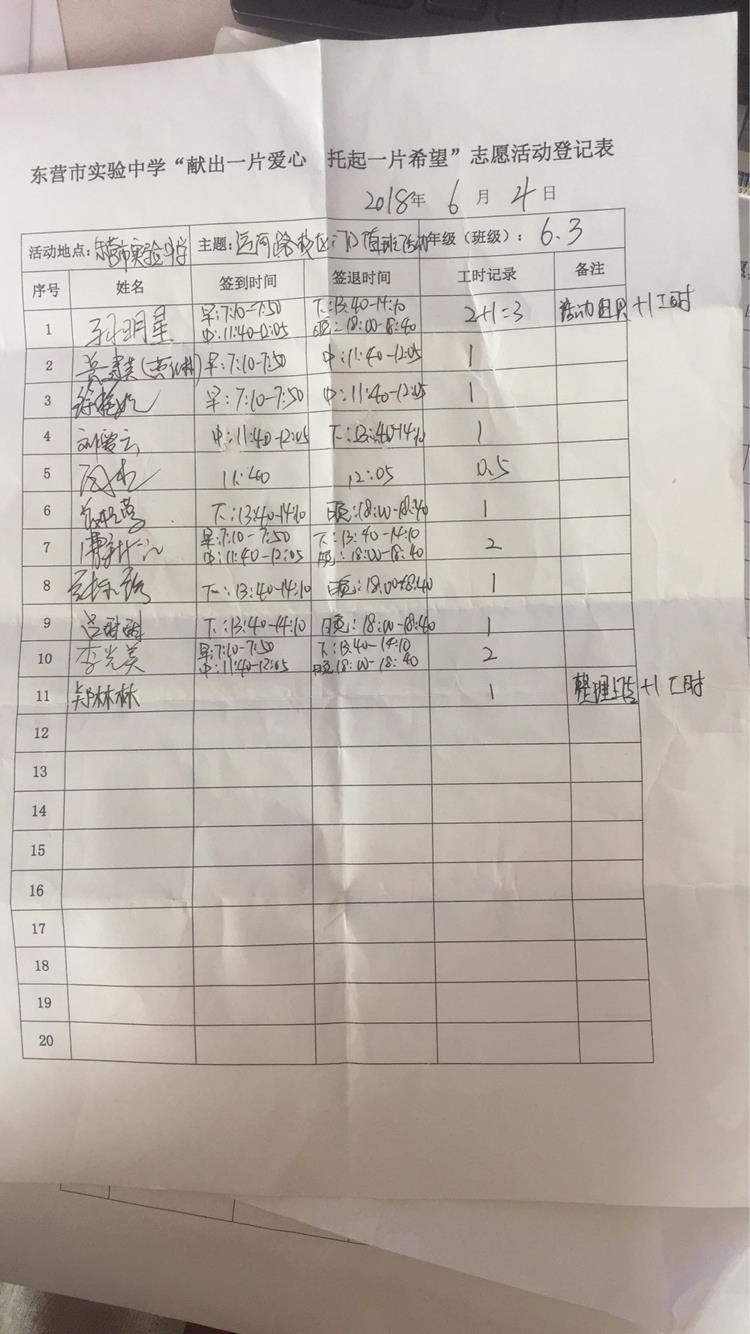 东营市实验中学“献出一片爱心 托起一片希望”志愿活动登记表
2018年 6 月 4 日
活动地点:东营市实验中学 主题:运河路校区门口值班活动 年级(班级): 6.3
序号 姓名 签到时间 签退时间 工时记录 备注
1 孙明星 早:7:10-7:50 中:11:40-12:05 下:13:40-14:10 晚:18:00-18:40 2+1=3 活动图片+1工时
2 早:7:10-7:50 中:11:40-12:05 1
3 早:7:10-7:50 中:11:40-12:05 1
4 中:11:40-12:05 下:13:40-14:10 1
5 11:40 12:05 0.5
6 下:13:40-14:10 晚:18:00-18:40 1
7 早:7:10-7:50 中:11:40-12:05 下:13:40-14:10 晚:18:00-18:40 2
8 下:13:40-14:10 晚:18:00-18:40 1
9 下:13:40-14:10 晚:18:00-18:40 1
10 李光美 早:7:10-7:50 中:11:40-12:05 下:13:40-14:10 晚18:00-18:40 2
11 郑林林 1 整理上传+1工时
12
13
14
15
16
17
18
19
20